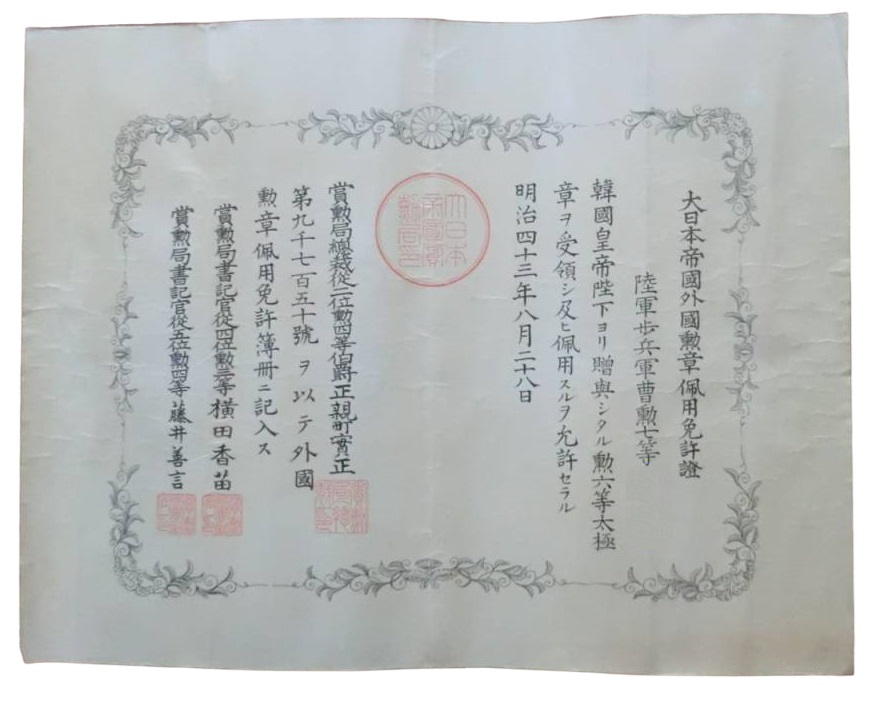 大日本帝國外國勲章佩用免許證
陸軍歩兵軍曹勲七等
韓國皇帝陛下ヨリ贈與シタル勲六等太極
章ヲ受領シ及ヒ佩用スルヲ允許セラル
明治四十三年八月二十八日
大日本帝國賞勲局印
賞勲局總裁從二位勲四等伯爵正親町實正
第九千七百五十號ヲ以テ外國
勲章佩用免許簿冊ニ記入ス
賞勲局書記官從四位勲三等横田香苗
賞勲局書記官從五位勲四等藤井善言